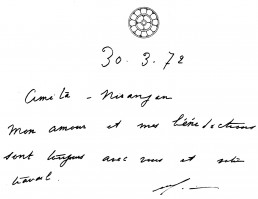 30. 3. 72
Amita - Niranjan
Mon amour et mes bénédictions
sont toujours avec vous et votre
travail.